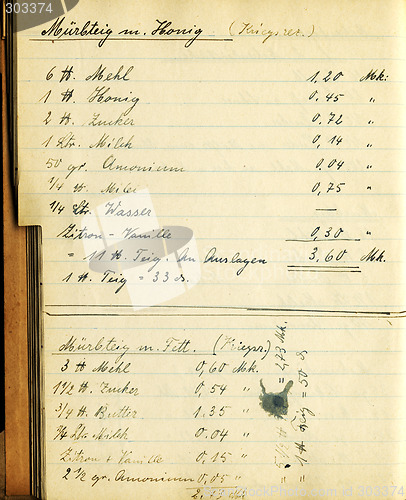 303374
Mürbteig m. Honig (Kriegsrez.)
6 ℔. Mehl 1.20 Mk.
1 ℔. Honig 0.45 "
2 ℔. Zucker 0.72 "
1 Ltr. Milch 0,14 "
50 gr. Amonium 0.04 "
1/4 ℔. 0,75 "
1/4 Ltr. Wasser —
Zitron - Vanille 0,30 "
= 11 ℔ Teig. An Auslagen 3,60 Mk.
1 ℔. Teig = 33 d.
Mürbteig m. Fett. (Kriegsr.)
3 ℔ Mehl 0,60 Mk.
1 1/2 ℔. Zucker 0,54 "
3/4 ℔. Butter 1.35 "
Ltr. Milch 0.04 "
Zitron + Vanille 0,15 "
2 1/2 gr. Amonium 0,05 "
= 1 ℔ Teig = 50 d.